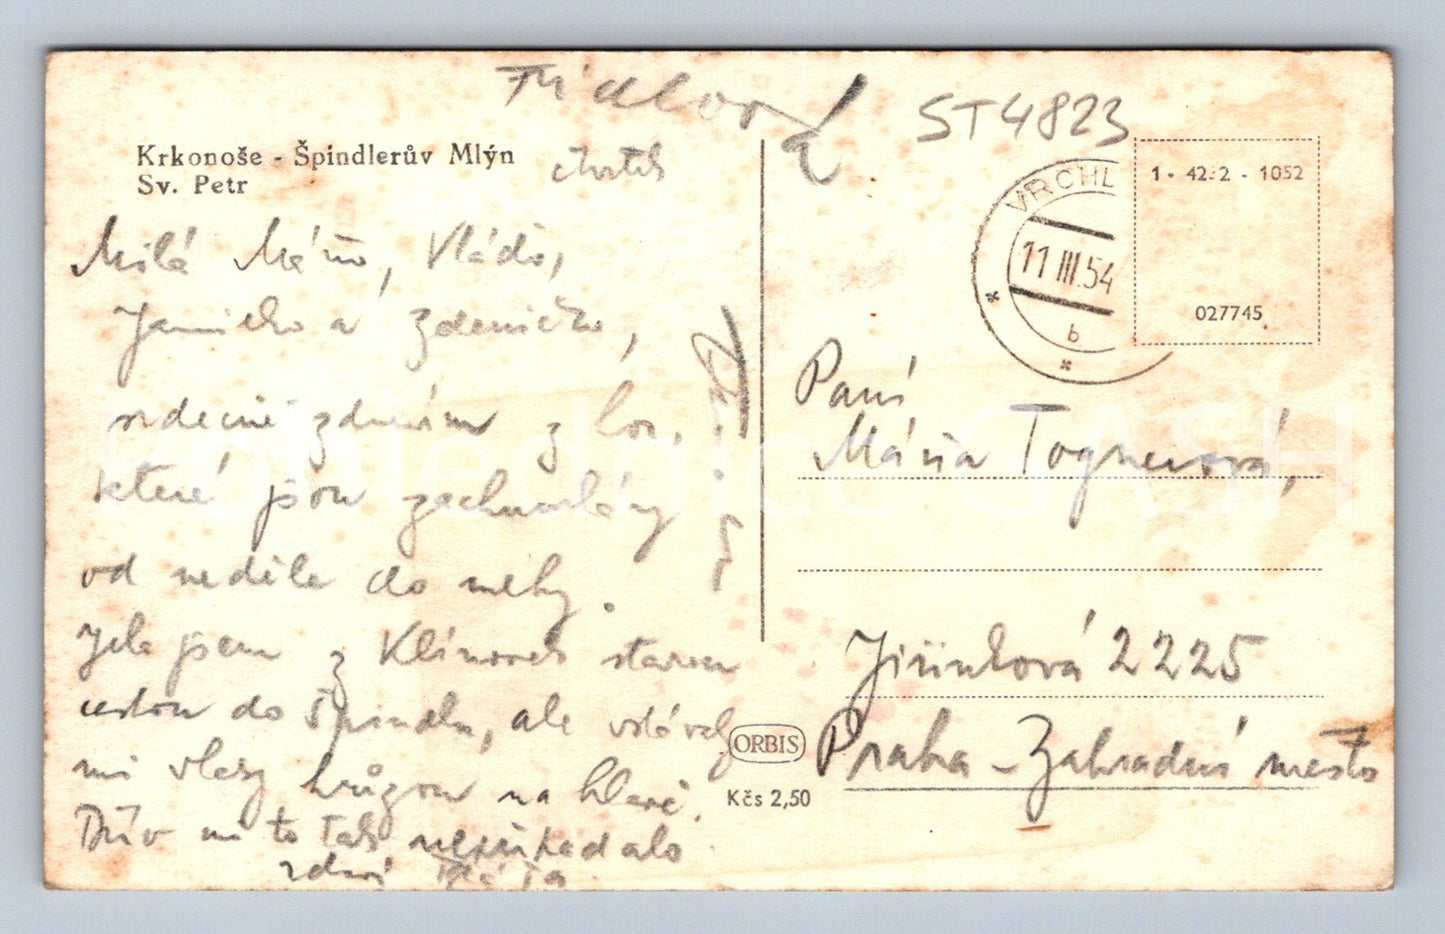 ST4823
Krkonoše - Špindlerův Mlýn
Sv. Petr
čtvrtek
Milá Máňo, Vláďo,
a Zdeničko,
srdečně zdravím z hor,
které jsou zachumlány
od neděle do mlhy.
Jela jsem z Klínovek starou
cestou do Špindlu, ale vstávaly
mi vlasy hrůzou na hlavě.
Dřív mi to tak nepřipadalo
zdraví
VRCHL
11 III.54
b
1 - 42:2 - 1052
027745
Paní
Mária Tognerová,
Jiřinková 2225
Praha - Zahradní město
ORBIS
Kčs 2,50